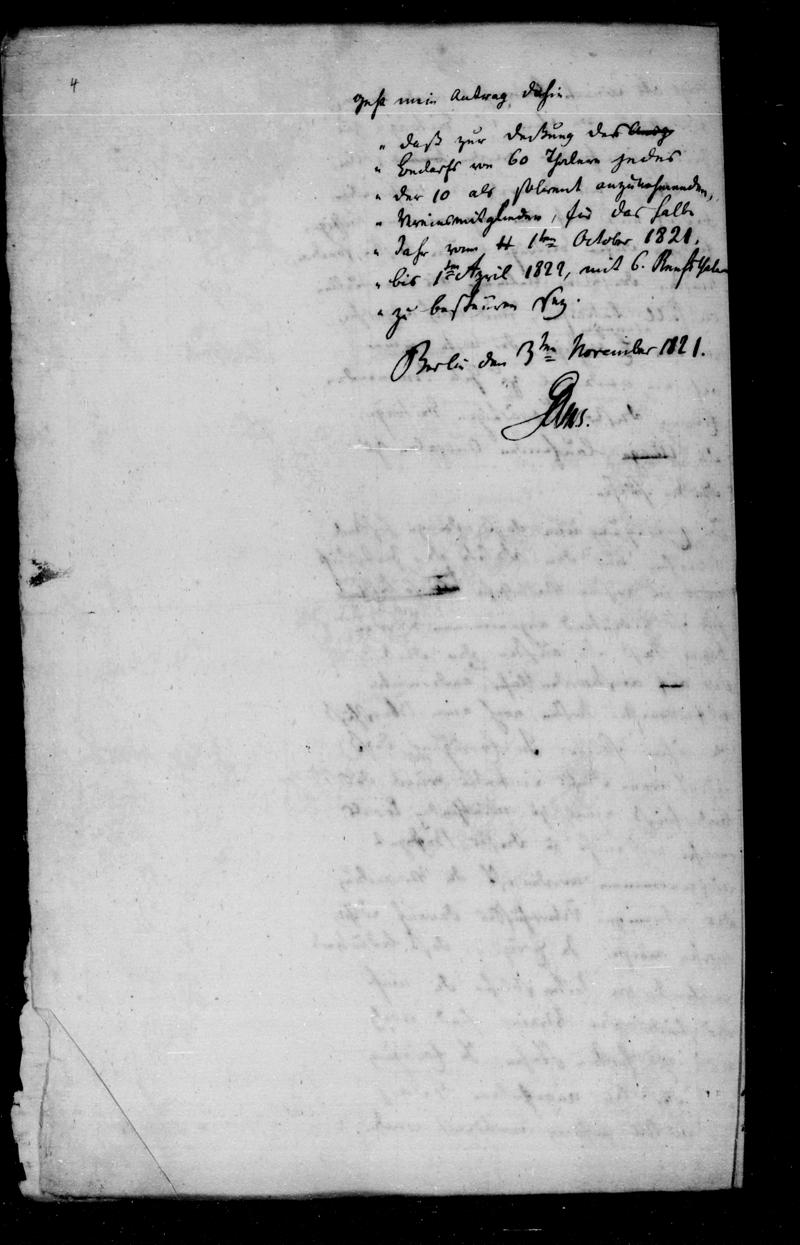 4
geht mein Antrag dahin
" daß zur Deckung des
" Bedarfs von 60 Thalern jedes
" der 10 als solvent anzunehmenden,
" Vereinsmitglieder, für das halbe
" Jahr vom 1ten October 1821,
" bis 1ten April 1822, mit 6. Reichsthaler
" zu besteuern sey.
Berlin den 3ten November 1821.
Gans.